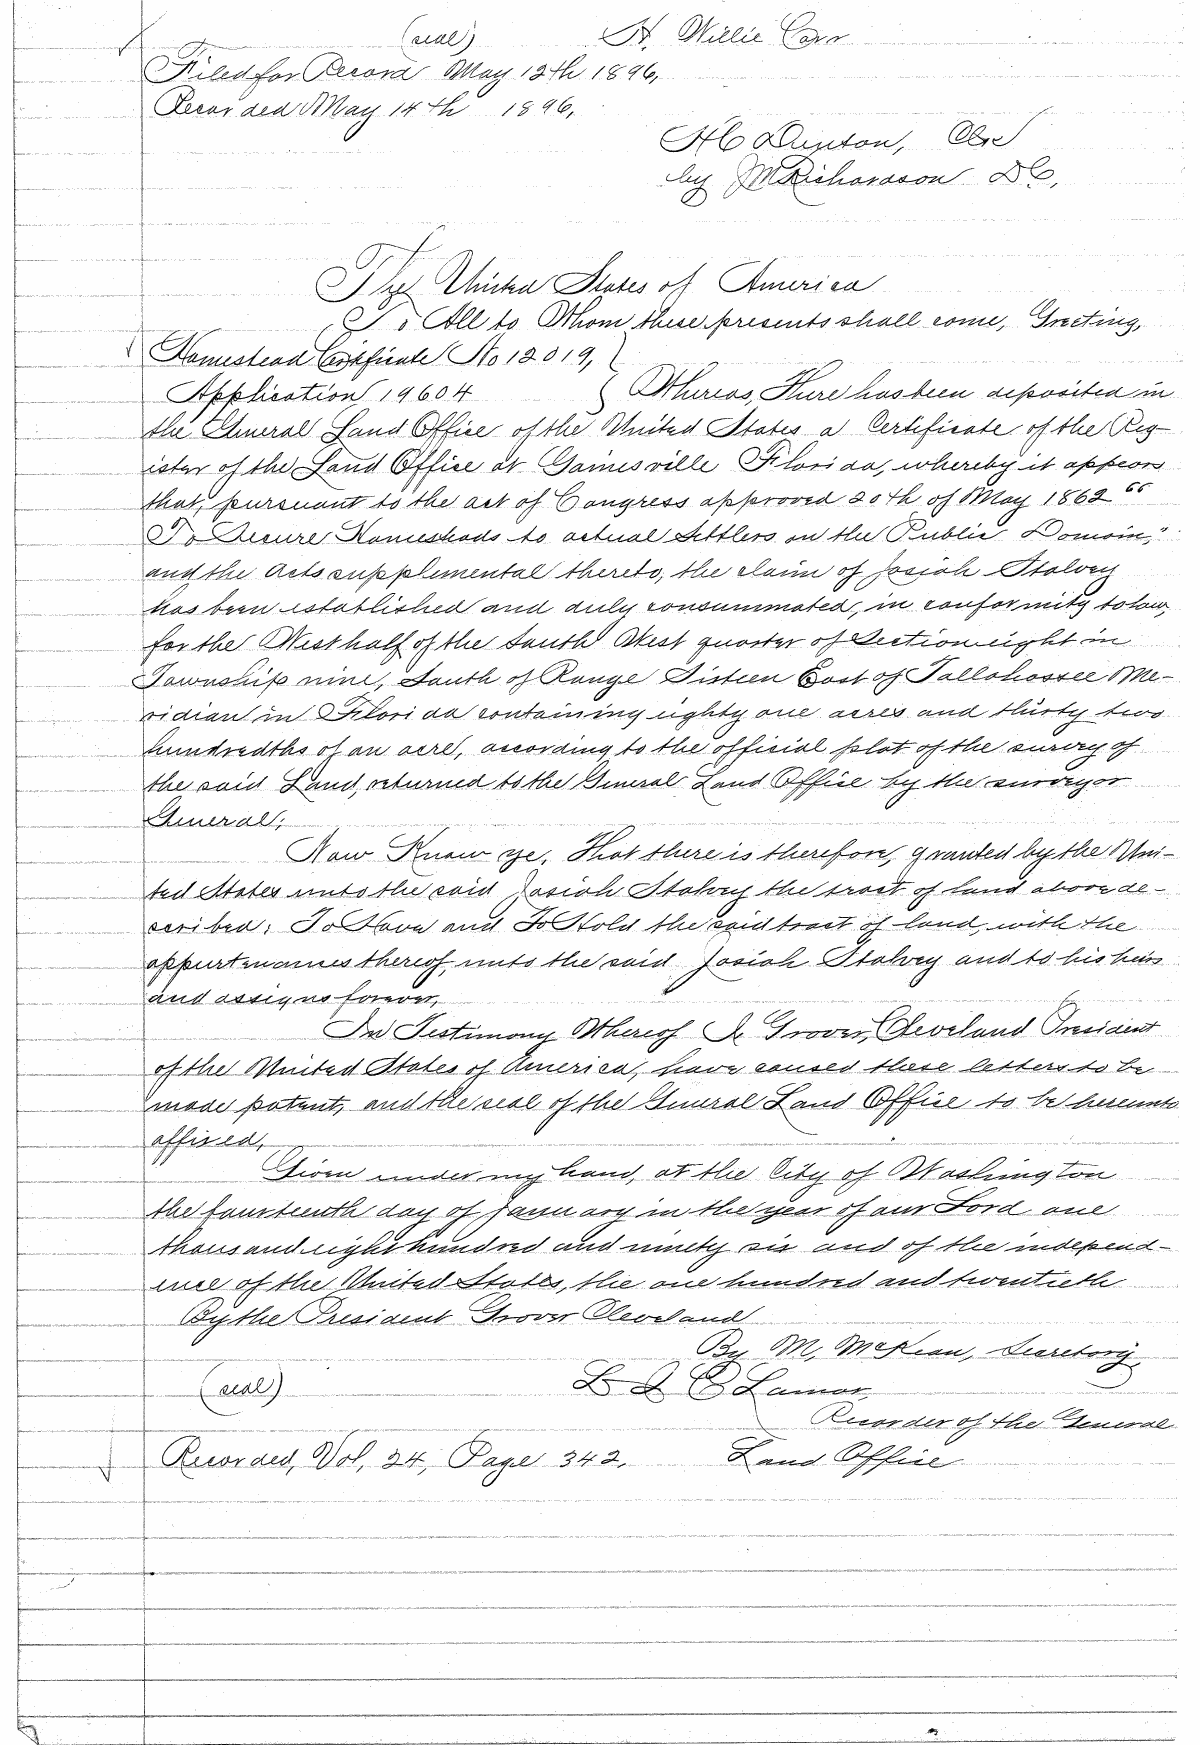 (seal) H. Willie Carr
Filed for Record May 12th 1896,
Recorded May 14th 1896,
H C Denton, Clerk
by J M Richardson D C,
The United States of America
To All to Whom these presents shall come, Greeting,
Homestead Certificate No 12019,
Application 19604 Whereas, There has been deposited in
the General Land Office of the United States a Certificate of the Reg-
ister of the Land Office at Gainesville Florida, whereby it appears
that, pursuant to the act of Congress approved 20th of May 1862 "
To Secure Homesteads to actual Settlers on the Public Domain,"
and the Acts supplemental thereto, the claim of Josiah Stalvey
has been established and duly consummated, in conformity to law,
for the West half of the South West quarter of Section eight in
Township nine, South of Range Sixteen East of Tallahassee Me-
ridian in Florida containing eighty one acres and thirty two
hundredths of an acre, according to the official plat of the survey of
the said Land, returned to the General Land Office by the surveyor
General;
Now Know ye, That there is therefore, granted by the Uni-
ted States unto the said Josiah Stalvey the tract of land above de-
scribed; To Have and To Hold the said tract of land, with the
appurtenances thereof, unto the said Josiah Stalvey and to his heirs
and assigns forever,
In Testimony Whereof I, Grover, Cleveland President
of the United States of America, have caused these letters to be
made patent, and the seal of the General Land Office to be hereunto
affixed,
Given under my hand, at the City of Washington
the fourteenth day of January in the year of our Lord one
thousand eight hundred and ninety six and of the independ-
ence of the United States, the one hundred and twentieth
By the President Grover Cleveland
By M, McKean, Secretary,
(seal) L Q C Lamar,
Recorder of the General
Recorded, Vol, 24, Page 342, Land Office